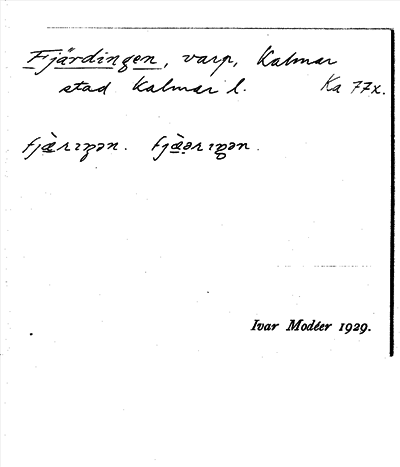 Fjärdingen, varp, Kalmar
stad Kalmar l. Ka 77x.
fjæ̀rıŋən. fjæ̀ərıŋən.
Ivar Modéer 1929.